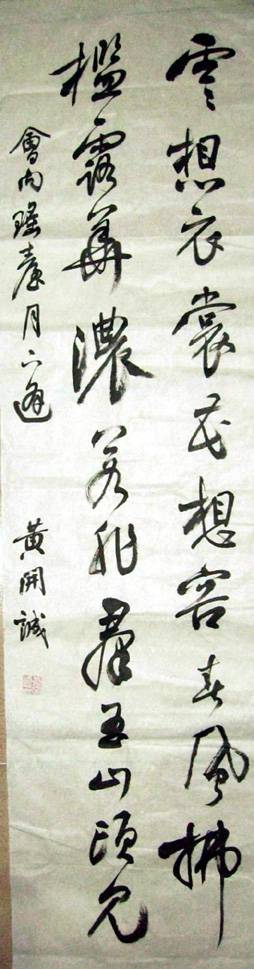 雲想衣裳花想容春風拂
檻露華濃若非羣玉山頭見
會向瑤臺月下逢
黃開誠